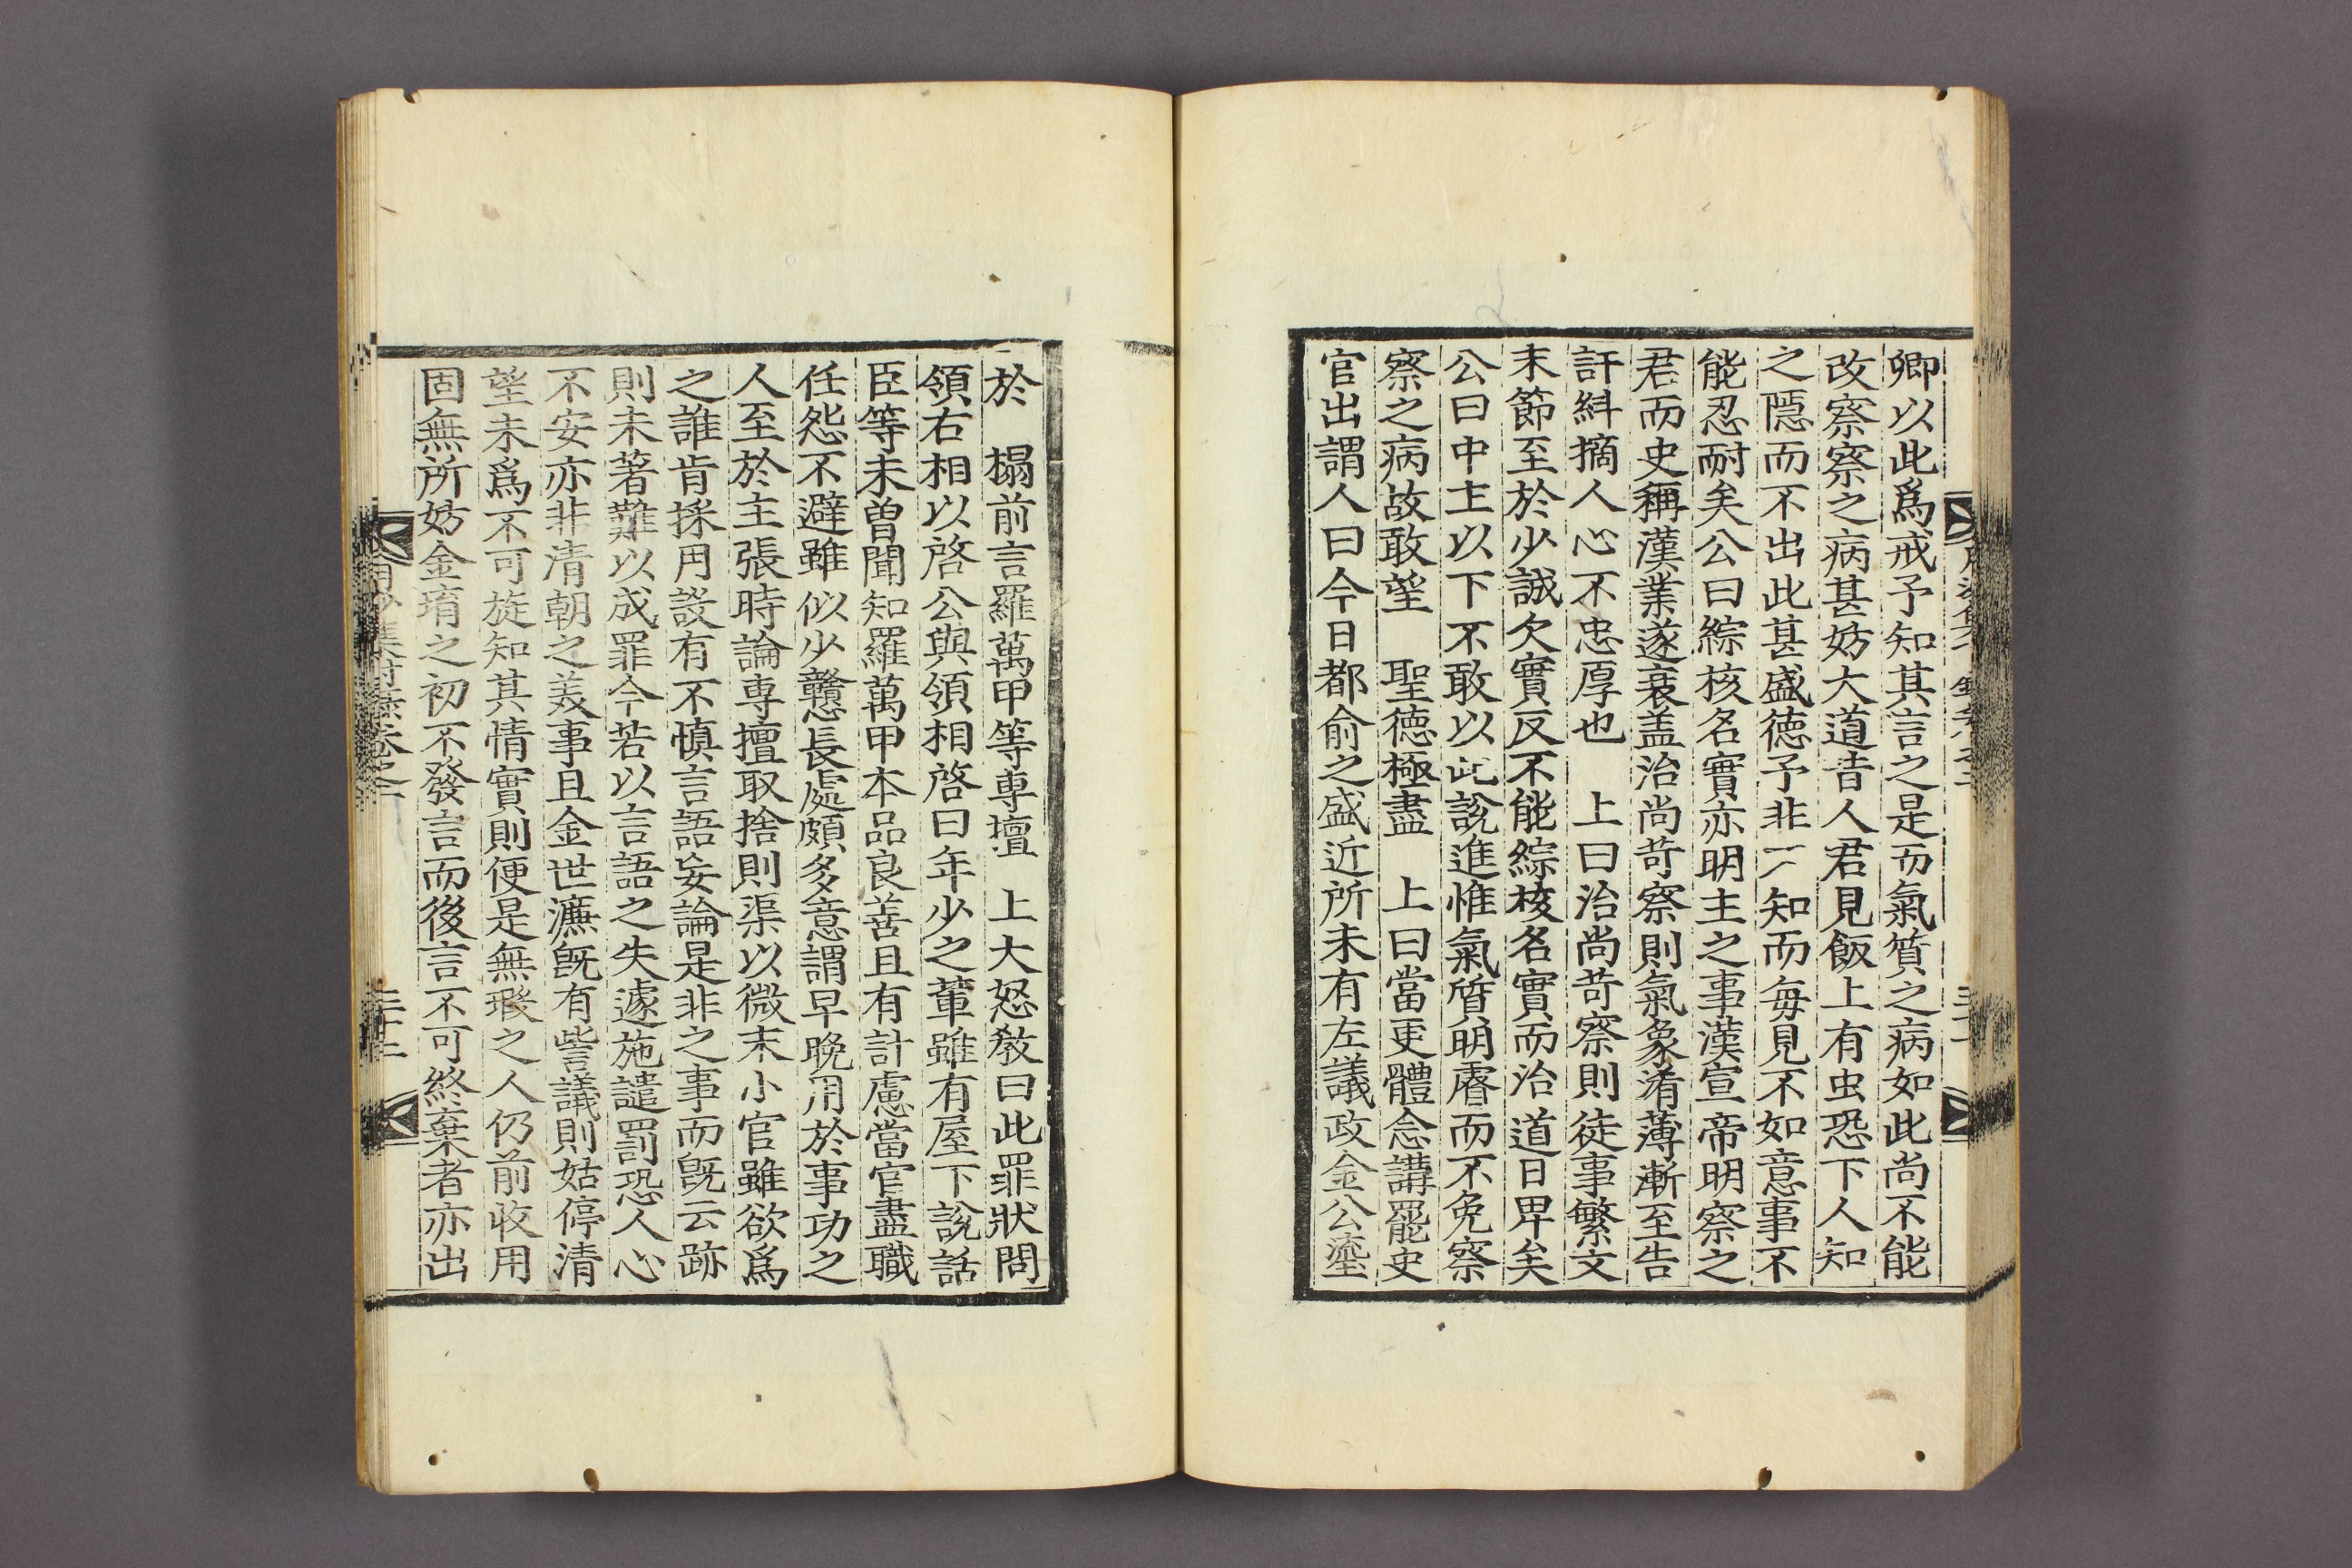 卿以此爲戒予知其言之是而氣質之病如此尙不能
改察察之病甚妨大道昔人君見飯上有虫恐下人知
之隱而不出此甚盛德予非不知而每見不如意事不
能忍耐矣公曰綜核名實亦明主之事漢宣帝明察之
君而史稱漢業遂衰盖治尙苛察則氣象淆薄漸至告
訐糾摘人心不忠厚也　上曰治尙苛察則徒事繁文
末節至於少誠欠實反不能綜核名實而治道日卑矣
公曰中主以下不敢以此說進惟氣質明睿而不免察
察之病故敢望　聖德極盡　上曰當更體念講罷史
官出謂人曰今日都兪之盛近所未有左議政金公瑬
於　榻前言羅萬甲等專擅　上大怒敎曰此罪狀問
領右相以啓公與領相啓曰年少之輩雖有屋下說話
臣等未曾聞知羅萬甲本品良善且有計慮當官盡職
任怨不避雖似少戇長處頗多意謂早晚用於事功之
人至於主張時論專擅取捨則渠以微末小官雖欲爲
之誰肯採用設有不愼言語妄論是非之事而旣云跡
則未著難以成罪今若以言語之失遽施譴罰恐人心
不安亦非淸朝之美事且金世濂旣有訾議則姑停淸
望未爲不可旋知其情實則便是無瑕之人仍前收用
固無所妨金堉之初不發言而後言不可終棄者亦出